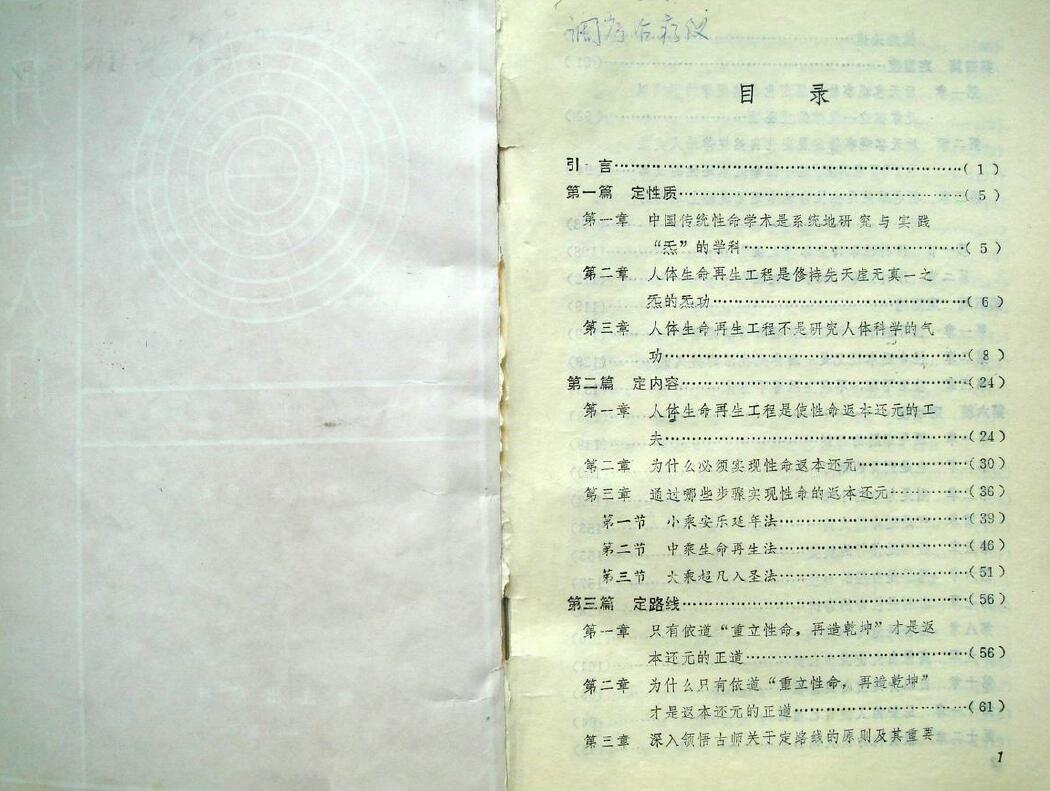 目　录
引　言……(1)
第一篇　定性质……(5)
第一章　中国传统性命学术是系统地研究与实践
“炁”的学科……(5)
第二章　人体生命再生工程是修持先天虚无真一之
炁的炁功……(6)
第三章　人体生命再生工程不是研究人体科学的气
功……(8)
第二篇　定内容……(24)
第一章　人体生命再生工程是使性命返本还元的工
夫……(24)
第二章　为什么必须实现性命返本还元……(30)
第三章　通过哪些步骤实现性命的返本还元……(36)
第一节　小乘安乐延年法……(39)
第二节　中乘生命再生法……(46)
第三节　大乘超凡入圣法……(51)
第三篇　定路线……(56)
第一章　只有依道“重立性命，再造乾坤”才是返
本还元的正道……(56)
第二章　为什么只有依道“重立性命，再造乾坤”
才是返本还元的正道……(61)
第三章　深入领悟古师关于定路线的原则及其重要
1